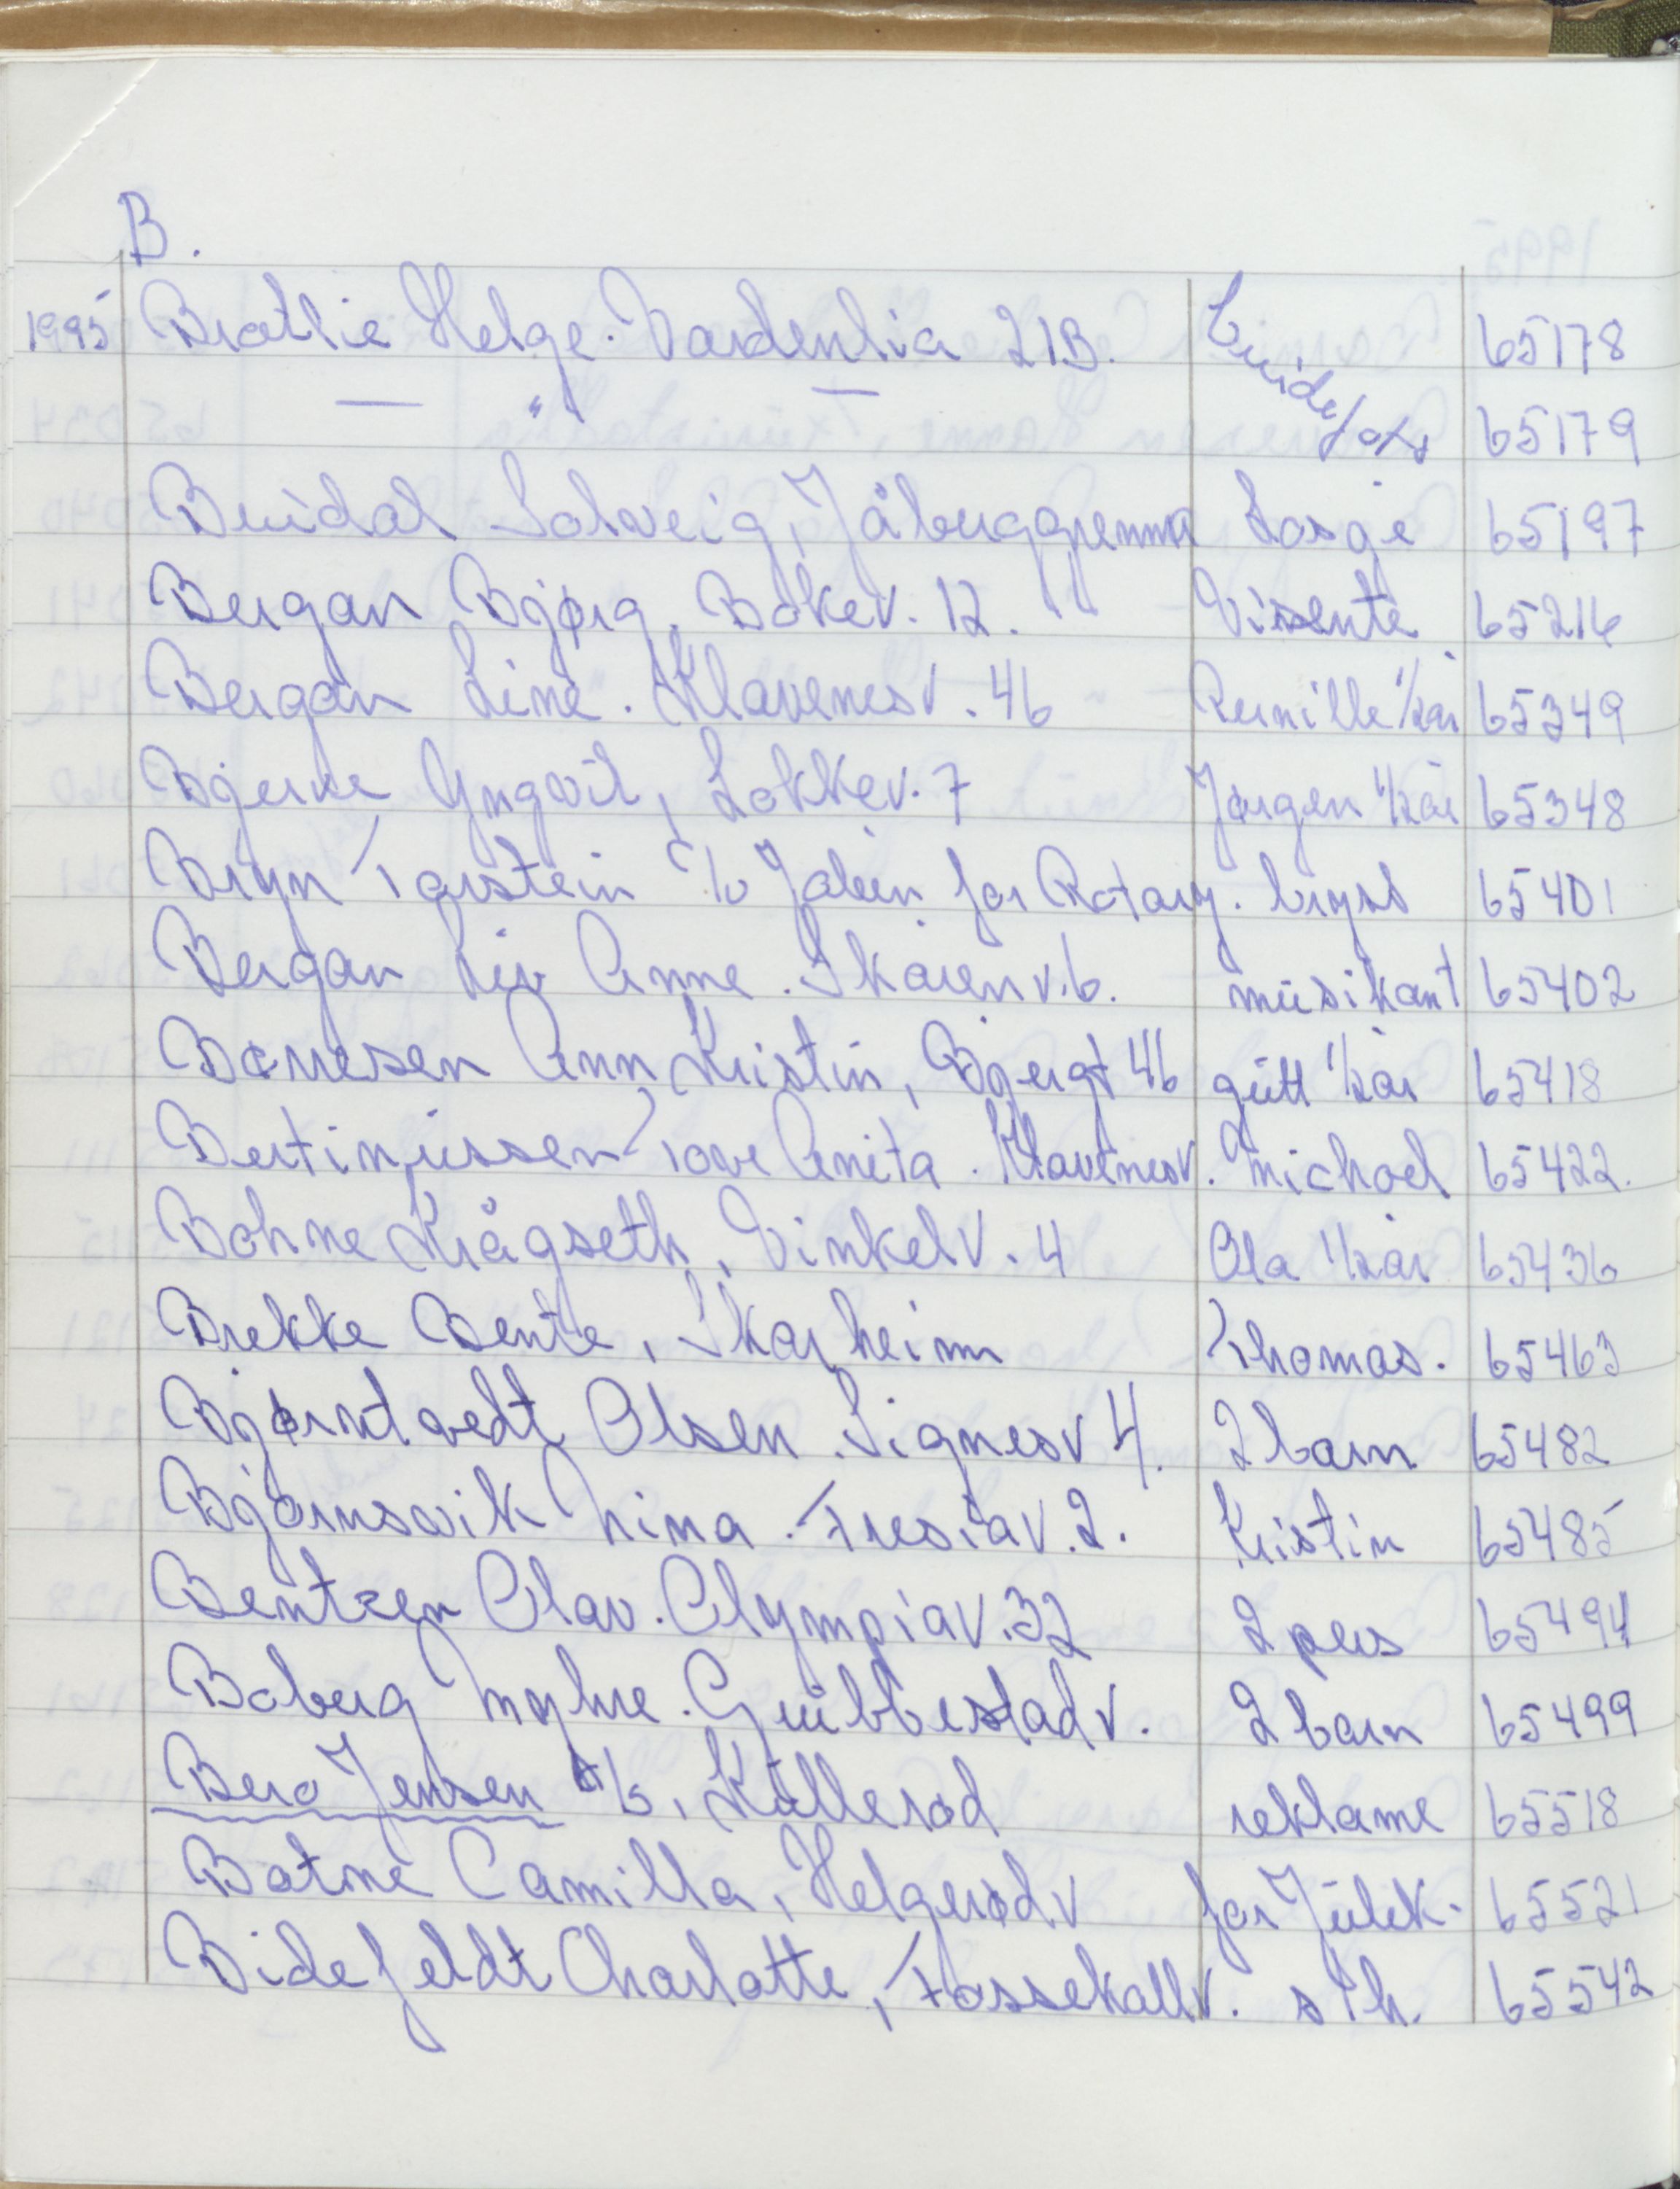 B.
1995 Bratlie Helge. Vardenlia 21B. 65178
— " — 65179
Solveig, Jåberggrenna 65197
Bergan Bjørg. Bøkev. 12. Visente 65216
Bergan Line. Klavenesv. 46 Pernille 1/2år 65349
Bjerke Yngvil, Løkkev. 7 Jørgen 1/2år 65348
Bryn Torstein c/o Jalen for Rotary. bryst 65401
Bergan Liv Anne. Skarenv. 6. musikant 65402
Børresen Ann Kristin, Bjergt 46 gutt 1/2år 65418
Bertinussen Tove Anita. Klavenesv. Michael 65422.
Bøhne Krågseth, Vinkelv. 4 Ola 1/2år 65436
Brekke Bente, Skarheim Thomas. 65463
Bjørntvedt Olsen. Signesv 4. 2 barn 65482
Bjørnsvik Nina. Fresiav. 2. Kristin 65485
Bentzen Olav. Olympiav. 32 2 pers 65494
Boberg Myhre. Grubbestadv. 2 barn 65499
Berg Jensen A/S, Kullerød reklame 65518
Botne Camilla, Helgerødv for Julek. 65521
Bidefeldt Charlotte, Fossekallv. s/h. 65542